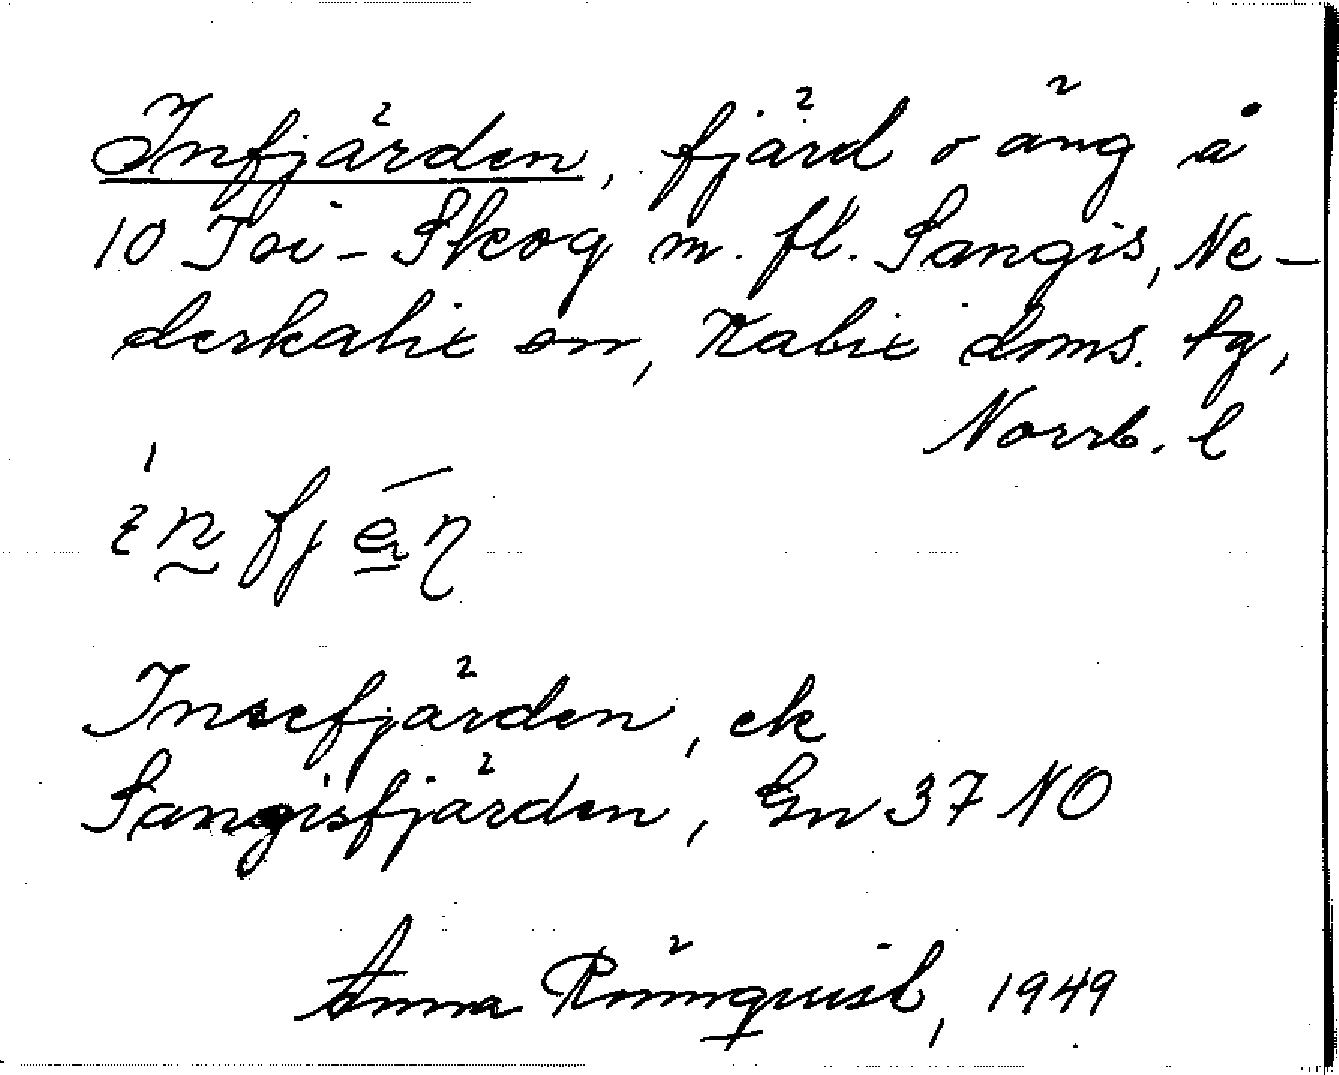 Infjärden, fjärd o äng å
10 Toi-Skog m. fl. Sangis, Ne-
derkalix sn, Kalix doms. tg,
Norrb. l
Inrefjärden, ek
Sangisfjärden, Gn 37 NO
Anna Rönnquist, 1949